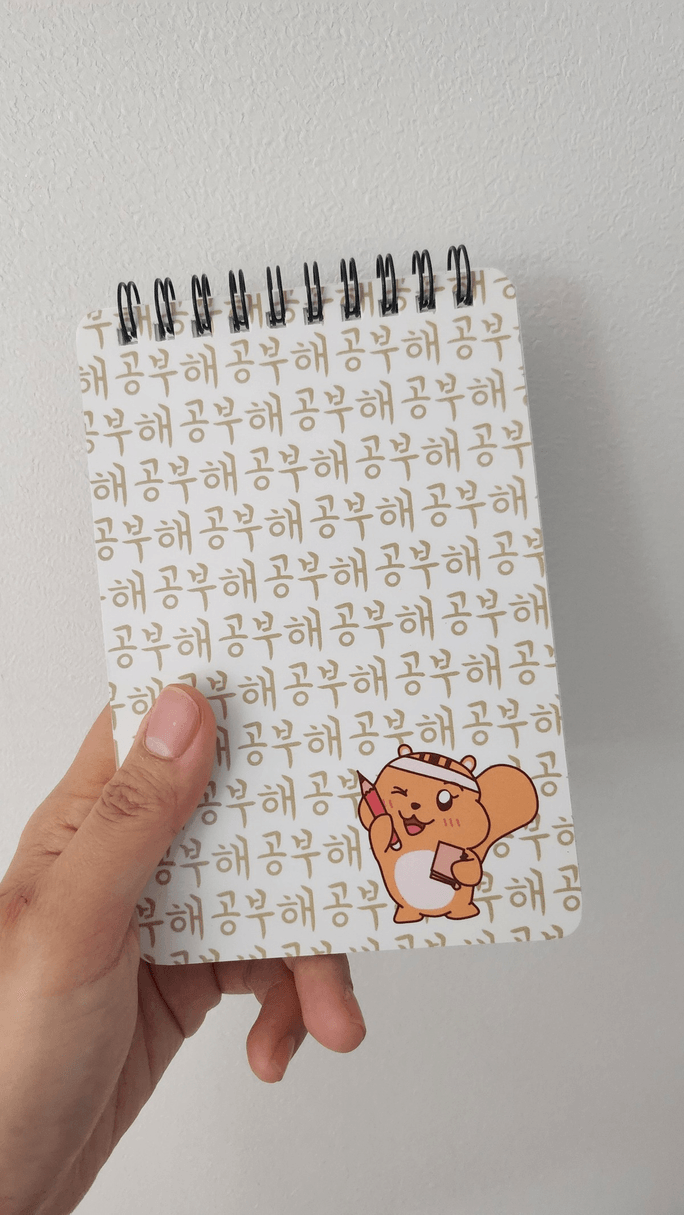 해 공부해 공부해 공부해 공부
공부해 공부해 공부해 공부해
해 공부해 공부해 공부해 공부
공부해 공부해 공부해 공부해
해 공부해 공부해 공부해 공부
공부해 공부해 공부해 공부해
해 공부해 공부해 공부해 공
해 공부해 공부해 공부해
공부해 공부 공
공부해 공부해 공부
부해 공부해 공부 부해 공